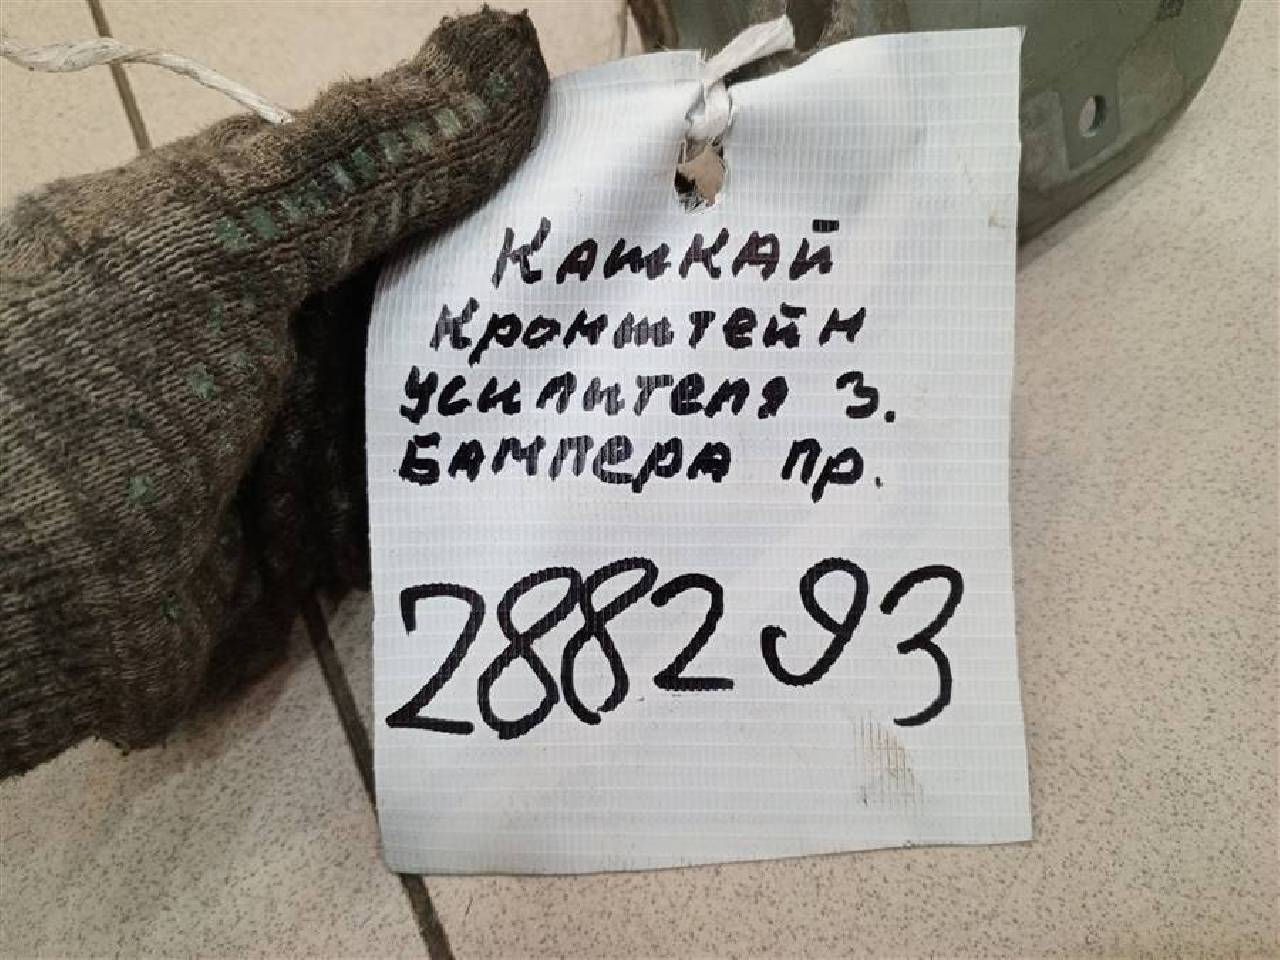 Кашкай
Кронштейн
усилителя з.
Бампера пр.
2882 93